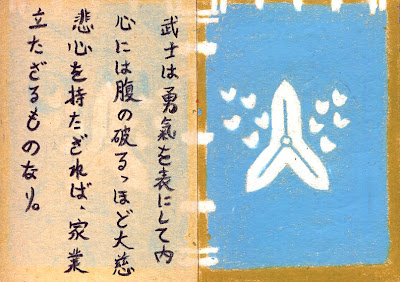 武士は勇氣を表にして内
心には腹の破るっほど大慈
悲心を持たざれば、家業
立たざるものなり。